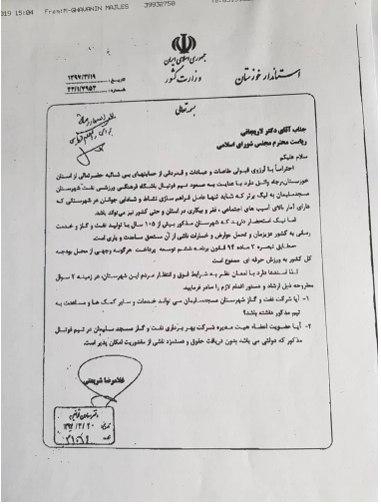 2019 15:04 From:M-GHAVANIN MAJLES 39932750
جمهوری اسلامی ایران
وزارت کشور
استاندار خوزستان
تاریخ: ۱۳۹۷/۳/۱۹
شماره:
بسمه تعالی
جناب آقای دکتر لاریجانی
ریاست محترم مجلس شورای اسلامی
سلام علیکم
احتراماً با آرزوی قبولی طاعات و عبادات و قدردانی از حمایتهای بی شائبه حضرتعالی از استان
خوزستان، رجاء واثق دارد با عنایت به صعود تیم فوتبال باشگاه فرهنگی ورزشی نفت شهرستان
مسجدسلیمان به لیگ برتر که شاید تنها عامل فراهم سازی نشاط و شادابی جوانان در شهرستانی که
دارای آمار بالای آسیب های اجتماعی، فقر و بیکاری در استان و حتی کشور نیز می‌باشد.
نیک استحضار دارید که شهرستان مذکور بیش از ۱۰۵ سال با تولید نفت و گاز و خدمت
رسانی به کشور عزیزمان و تحمل عوارض و خسارات ناشی از آن مستحق مساعدت و یاری است.
مطابق تبصره ۲ ماده ۹۴ قانون برنامه ششم توسعه پرداخت هرگونه وجهی از محل بودجه
کل کشور به ورزش حرفه ای ممنوع است
لذا استدعا دارد با امعان نظر به شرایط فوق و انتظار مردم این شهرستان، در زمینه ۲ سوال
مطروحه ذیل ارشاد و دستور اقدام لازم را صادر فرمایید
۱- آیا شرکت نفت و گاز شهرستان مسجدسلیمان می تواند خدمات و سایر کمک ها و مساعدت به
تیم مذکور داشته باشد؟
۲- آیا عضویت اعضاء هیت مدیره شرکت بهره برداری نفت و گاز مسجد سلیمان در تیم فوتبال
مذکور که دولتی می باشد، بدون دریافت حقوق و دستمزد ناشی از مأموریت امکان پذیر است.
غلامرضا شریعتی